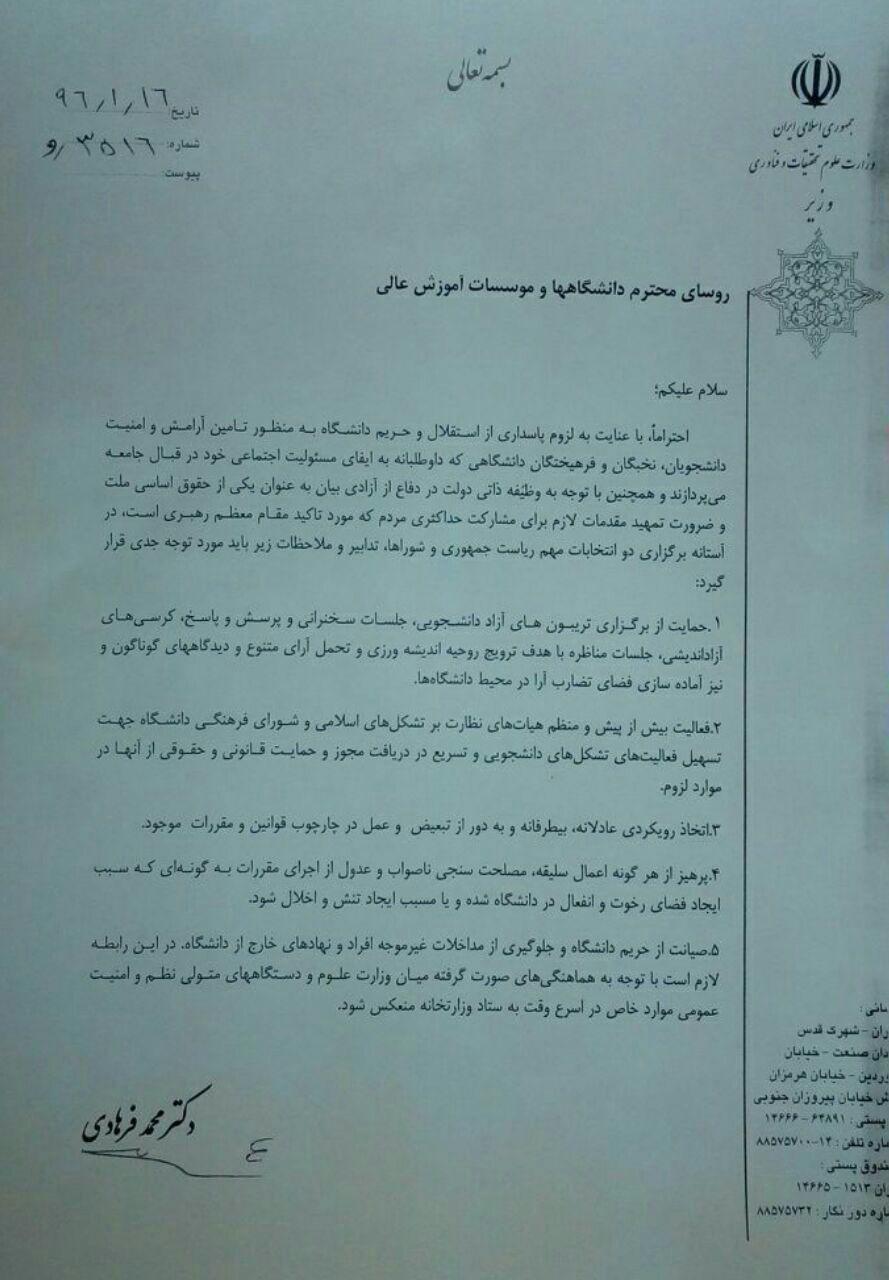 بسمه تعالی
جمهوری اسلامی ایران
وزارت علوم تحقیقات و فناوری
وزیر
تاریخ: ۹۶/۱/۱۶
شماره: ۳۵۱۶/و
پیوست:
روسای محترم دانشگاهها و موسسات آموزش عالی
سلام علیکم؛
احتراماً، با عنایت به لزوم پاسداری از استقلال و حریم دانشگاه به منظور تامین آرامش و امنیت
دانشجویان، نخبگان و فرهیختگان دانشگاهی که داوطلبانه به ایفای مسئولیت اجتماعی خود در قبال جامعه
می‌پردازند و همچنین با توجه به وظیفه ذاتی دولت در دفاع از آزادی بیان به عنوان یکی از حقوق اساسی ملت
و ضرورت تمهید مقدمات لازم برای مشارکت حداکثری مردم که مورد تاکید مقام معظم رهبری است، در
آستانه برگزاری دو انتخابات مهم ریاست جمهوری و شوراها، تدابیر و ملاحظات زیر باید مورد توجه جدی قرار
گیرد:
۱.حمایت از برگزاری تریبون های آزاد دانشجویی، جلسات سخنرانی و پرسش و پاسخ، کرسی‌های
آزاداندیشی، جلسات مناظره با هدف ترویج روحیه اندیشه ورزی و تحمل آرای متنوع و دیدگاههای گوناگون و
نیز آماده سازی فضای تضارب آرا در محیط دانشگاه‌ها.
۲.فعالیت بیش از پیش و منظم هیات‌های نظارت بر تشکل‌های اسلامی و شورای فرهنگی دانشگاه جهت
تسهیل فعالیت‌های تشکل‌های دانشجویی و تسریع در دریافت مجوز و حمایت قانونی و حقوقی از آنها در
موارد لزوم.
۳.اتخاذ رویکردی عادلانه، بیطرفانه و به دور از تبعیض و عمل در چارچوب قوانین و مقررات موجود.
۴.پرهیز از هر گونه اعمال سلیقه، مصلحت سنجی ناصواب و عدول از اجرای مقررات به گونه‌ای که سبب
ایجاد فضای رخوت و انفعال در دانشگاه شده و یا مسبب ایجاد تنش و اخلال شود.
۵.صیانت از حریم دانشگاه و جلوگیری از مداخلات غیرموجه افراد و نهادهای خارج از دانشگاه. در این رابطه
لازم است با توجه به هماهنگی‌های صورت گرفته میان وزارت علوم و دستگاههای متولی نظم و امنیت
عمومی موارد خاص در اسرع وقت به ستاد وزارتخانه منعکس شود.
دکتر محمد فرهادی
– شهرک قدس
صنعت – خیابان
– خیابان هرمزان
خیابان پیروزان جنوبی
پستی : ۶۴۸۹۱ – ۱۴۶۶۶
تلفن : ۱۴-۸۸۵۷۵۷۰۰
پستی :
۱۵۱۳ – ۱۴۶۶۵
دور نگار : ۸۸۵۷۵۷۳۲